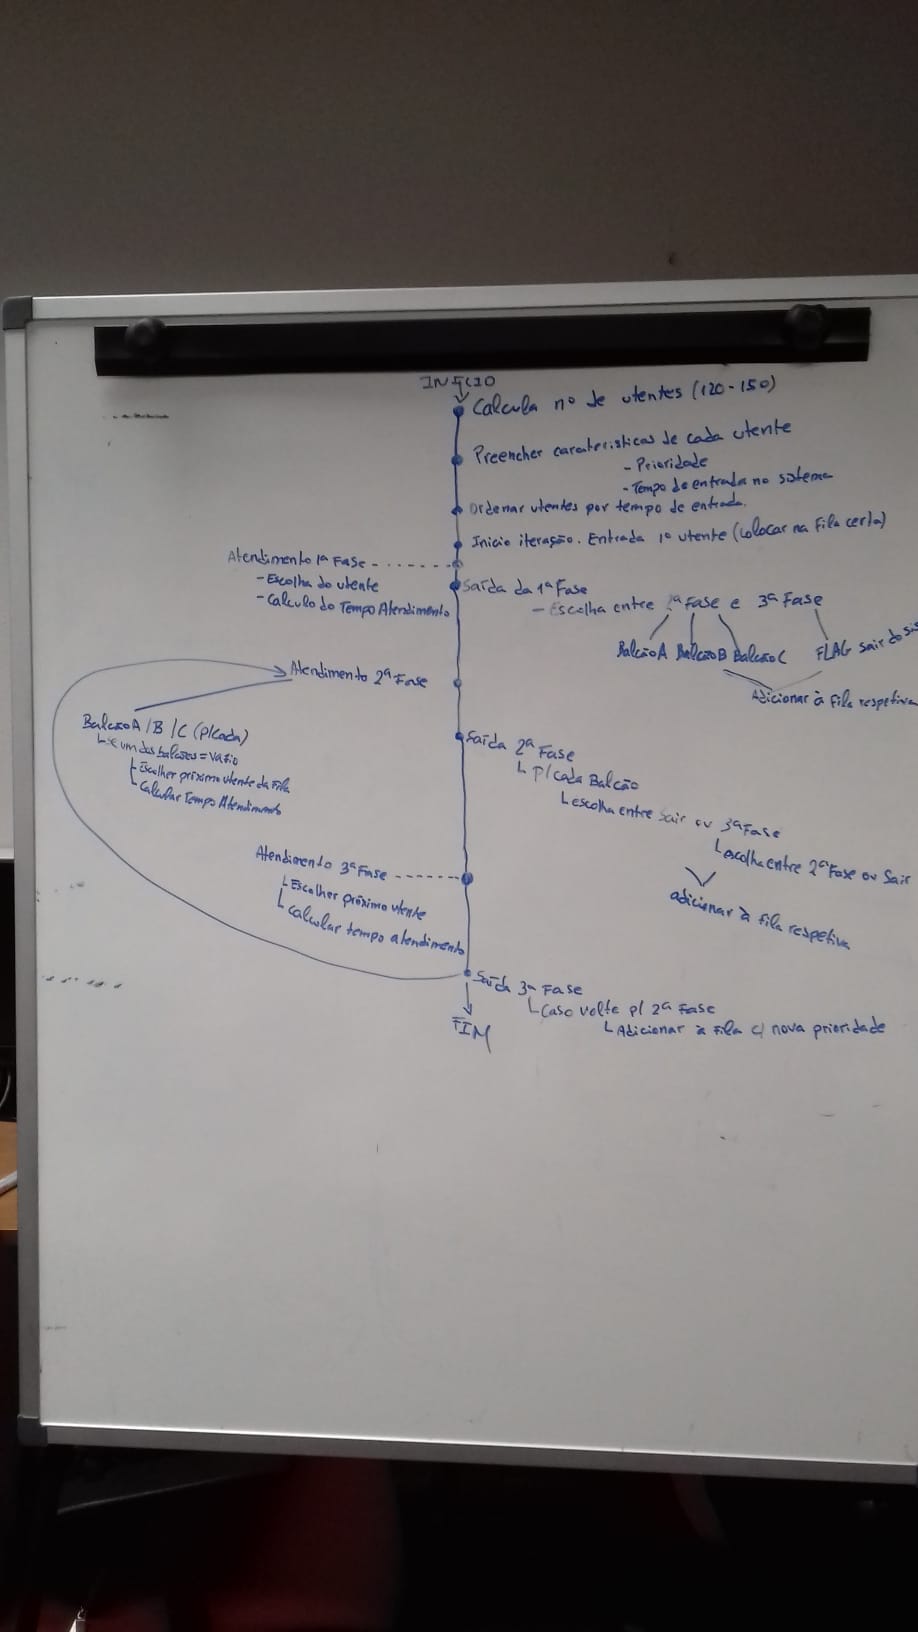 INÍCIO
Calcula nº de utentes (120-150)
Preencher caraterísticas de cada utente
- Prioridade
- Tempo de entrada no sistema
Ordenar utentes por tempo de entrada.
Inicio iteração. Entrada 1º utente (colocar na fila certa)
Atendimento 1ª Fase
- Escolha do utente
- Calculo do Tempo Atendimento
Saída da 1ª Fase
- Escolha entre Fase e 3ª Fase
Balcão A Balcão B Balcão C FLAG sair do
Adicionar à fila respetiva
Atendimento 2ª Fase
Balcão A/B/C (p/cada)
um dos balcões = vazio
Escolher próximo utente da fila
Calcular Tempo Atendimento
Saída 2ª Fase
p/cada Balcão
escolha entre sair ou 3ª Fase
escolha entre 2ª Fase ou Sair
adicionar à fila respetiva
Atendimento 3ª Fase
Escolher próximo utente
calcular tempo atendimento
Saída 3ª Fase
Caso volte p/ 2ª Fase
Adicionar à fila c/ nova prioridade
FIM